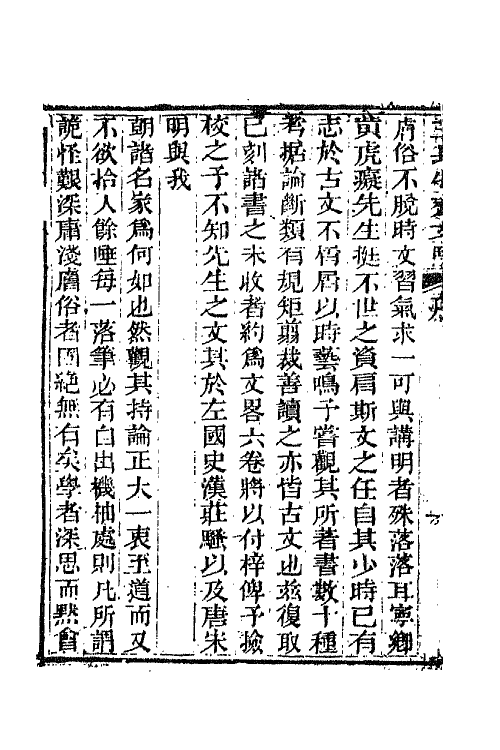 膚俗不脫時文習氣求一可與講明者殊落落耳寧鄉
黃虎癡先生挺不世之資肩斯文之任自其少時已有
志於古文不僃屑以時藝鳴予嘗觀其所著書數十種
考据論斷類有規矩剪裁善讀之亦皆古文也茲復取
已刻諸書之未收者約爲文畧六卷將以付梓俾予撿
校之予不知先生之文其於左國史漢莊騷以及唐宋
明與我
朝諸名家爲何如也然觀其持論正大一衷至道而又
不欲拾人餘唾每一落筆必有自出機抽處則凡所謂
詭怪艱深庸淺膚俗者固絕無有矣學者深思而默會